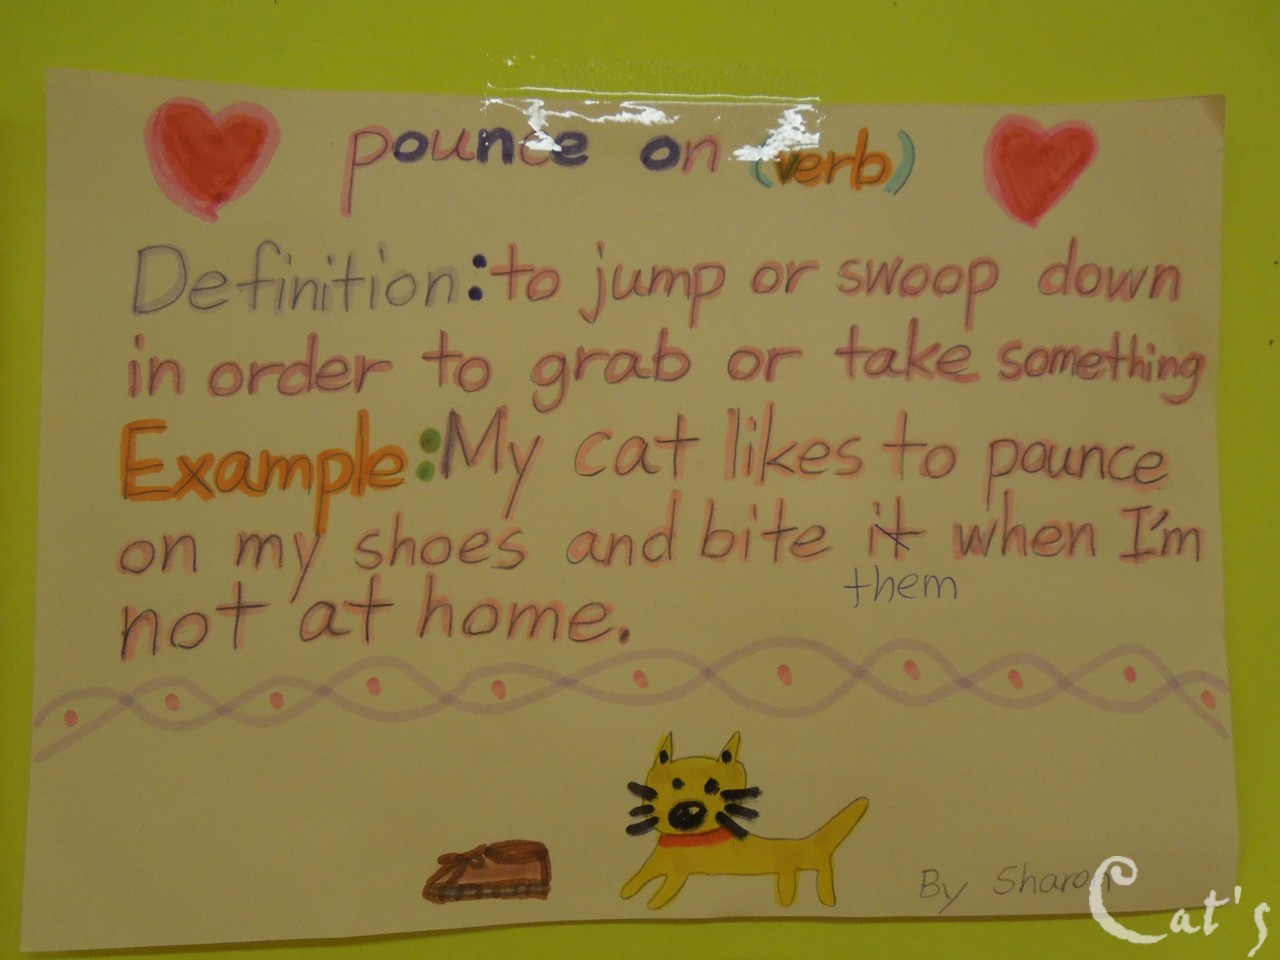 pounce on (verb)
Definition: to jump or swoop down
in order to grab or take something
Example: My cat likes to pounce
on my shoes and bite it when I'm
them
not at home.
By Sharon
Cat's